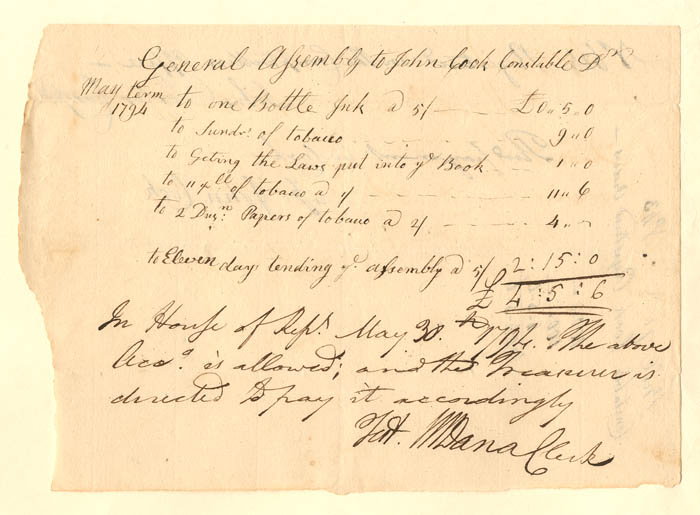 General Assembly to John Cook Constible Dr
May term
1794
to one Bottle Ink a 5/ £0 „ 5 „ 0
to Sunds. of tobaco 9 „ 0
to Geting the Laws put into ye Book 1 „ 0
to 11 of tobaco a 1/ 11 „ 6
to 2 Duzn. Papers of tobaco a 2/ 4 „ –
to Eleven days tending ye assembly a 5/ 2 : 15 : 0
£ 4 : 5 : 6
In House of Reps. May 30th 1794. The above
Acco. is allowed; and the Treasurer is
directed to pay it accordingly
Test. W Dana Clerk